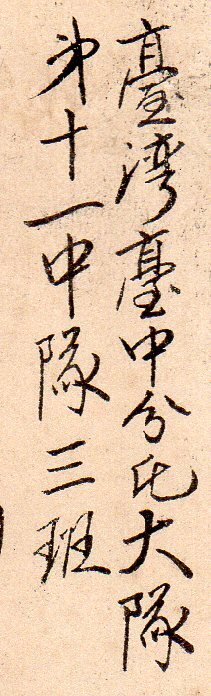 臺湾臺中分屯大隊
㐧十一中隊三班